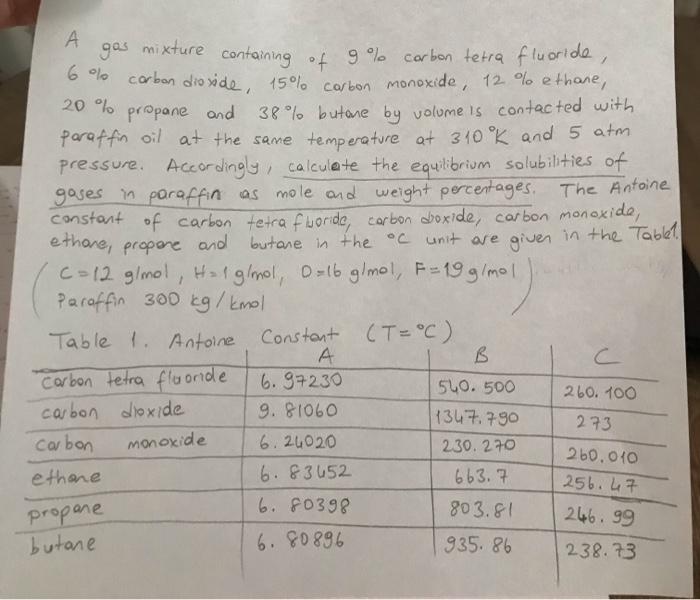 A gas mixture containing of 9 % carbon tetra fluoride,
6 % carbon dioxide, 15% carbon monoxide, 12 % ethane,
20 % propane and 38 % butane by volume is contacted with
paraffin oil at the same temperature at 310 °K and 5 atm
pressure. Accordingly, calculate the equilibrium solubilities of
gases in paraffin as mole and weight percentages. The Antoine
constant of carbon tetra fluoride, carbon dioxide, carbon monoxide,
ethane, propane and butane in the °C unit are given in the Table1.
(C=12 g/mol, H=1 g/mol, O=16 g/mol, F=19 g/mol
Paraffin 300 kg/kmol)
Table 1. Antoine Constant (T=°C)
A B C
carbon tetra fluoride 6.97230 540.500 260.100
carbon dioxide 9.81060 1347.790 273
carbon monoxide 6.24020 230.270 260.010
ethane 6.83452 663.7 256.47
propane 6.80398 803.81 246.99
butane 6.80896 935.86 238.73